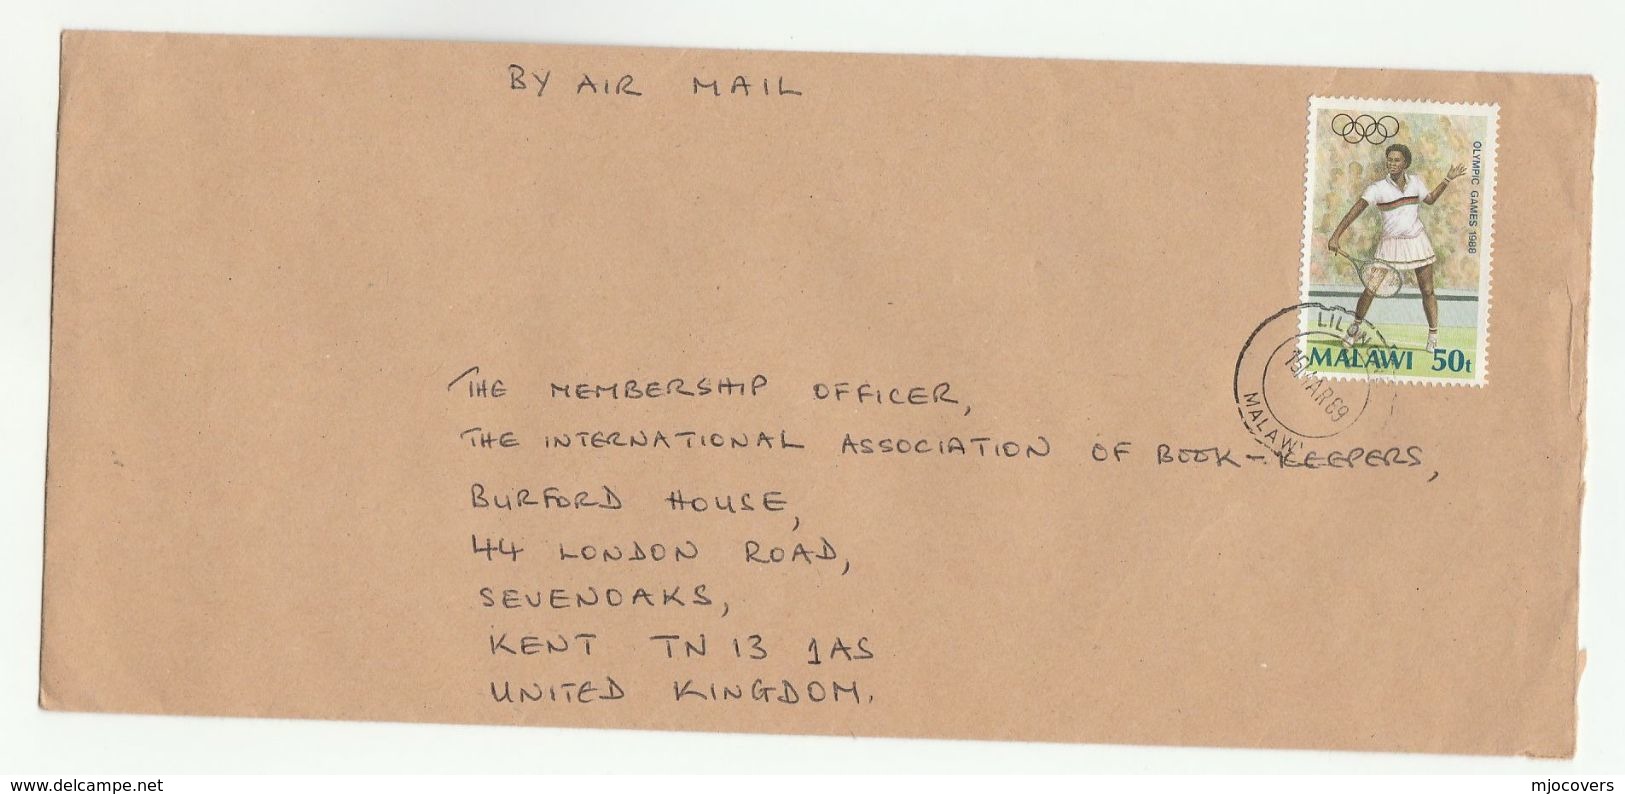 BY AIR MAIL
OLYMPIC GAMES 1988
MALAWI 50t
MALAWI
THE MEMBERSHIP OFFICER,
THE INTERNATIONAL ASSOCIATION OF BOOK-KEEPERS,
BURFORD HOUSE,
44 LONDON ROAD,
SEVENOAKS,
KENT TN 13 1AS
UNITED KINGDOM.
www.delcampe.net
mjocovers